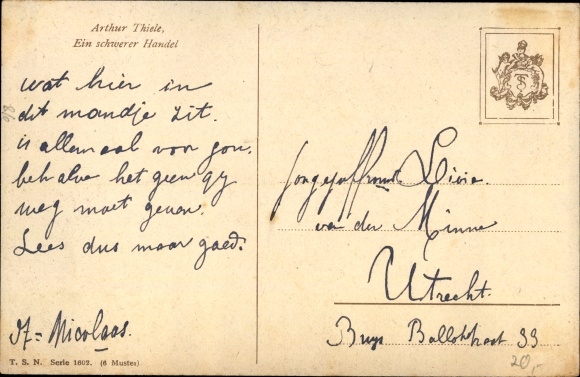 Arthur Thiele,
Ein schwerer Handel
wat hier in
dit mandje zit.
is allemaal voor jou.
behalve het geen gy
weg moet geven.
Lees dus maar goed.
St = Nicolaas.
T. S. N. Serie 1602. (6 Muster)
Jongejuffrouw Livia.
van der Minne
Utrecht.
Buys Ballotstraat 33
20,-